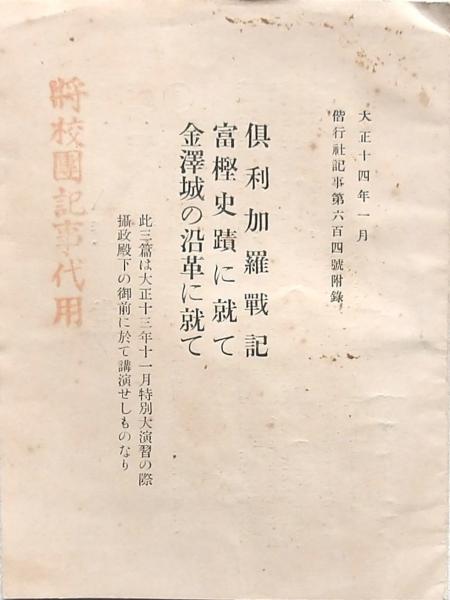 大正十四年一月
偕行社記事第六百四號附錄
俱利加羅戰記
富樫史蹟に就て
金澤城の沿革に就て
此三篇は大正十三年十一月特別大演習の際
攝政殿下の御前に於て講演せしものなり
將校團記事代用